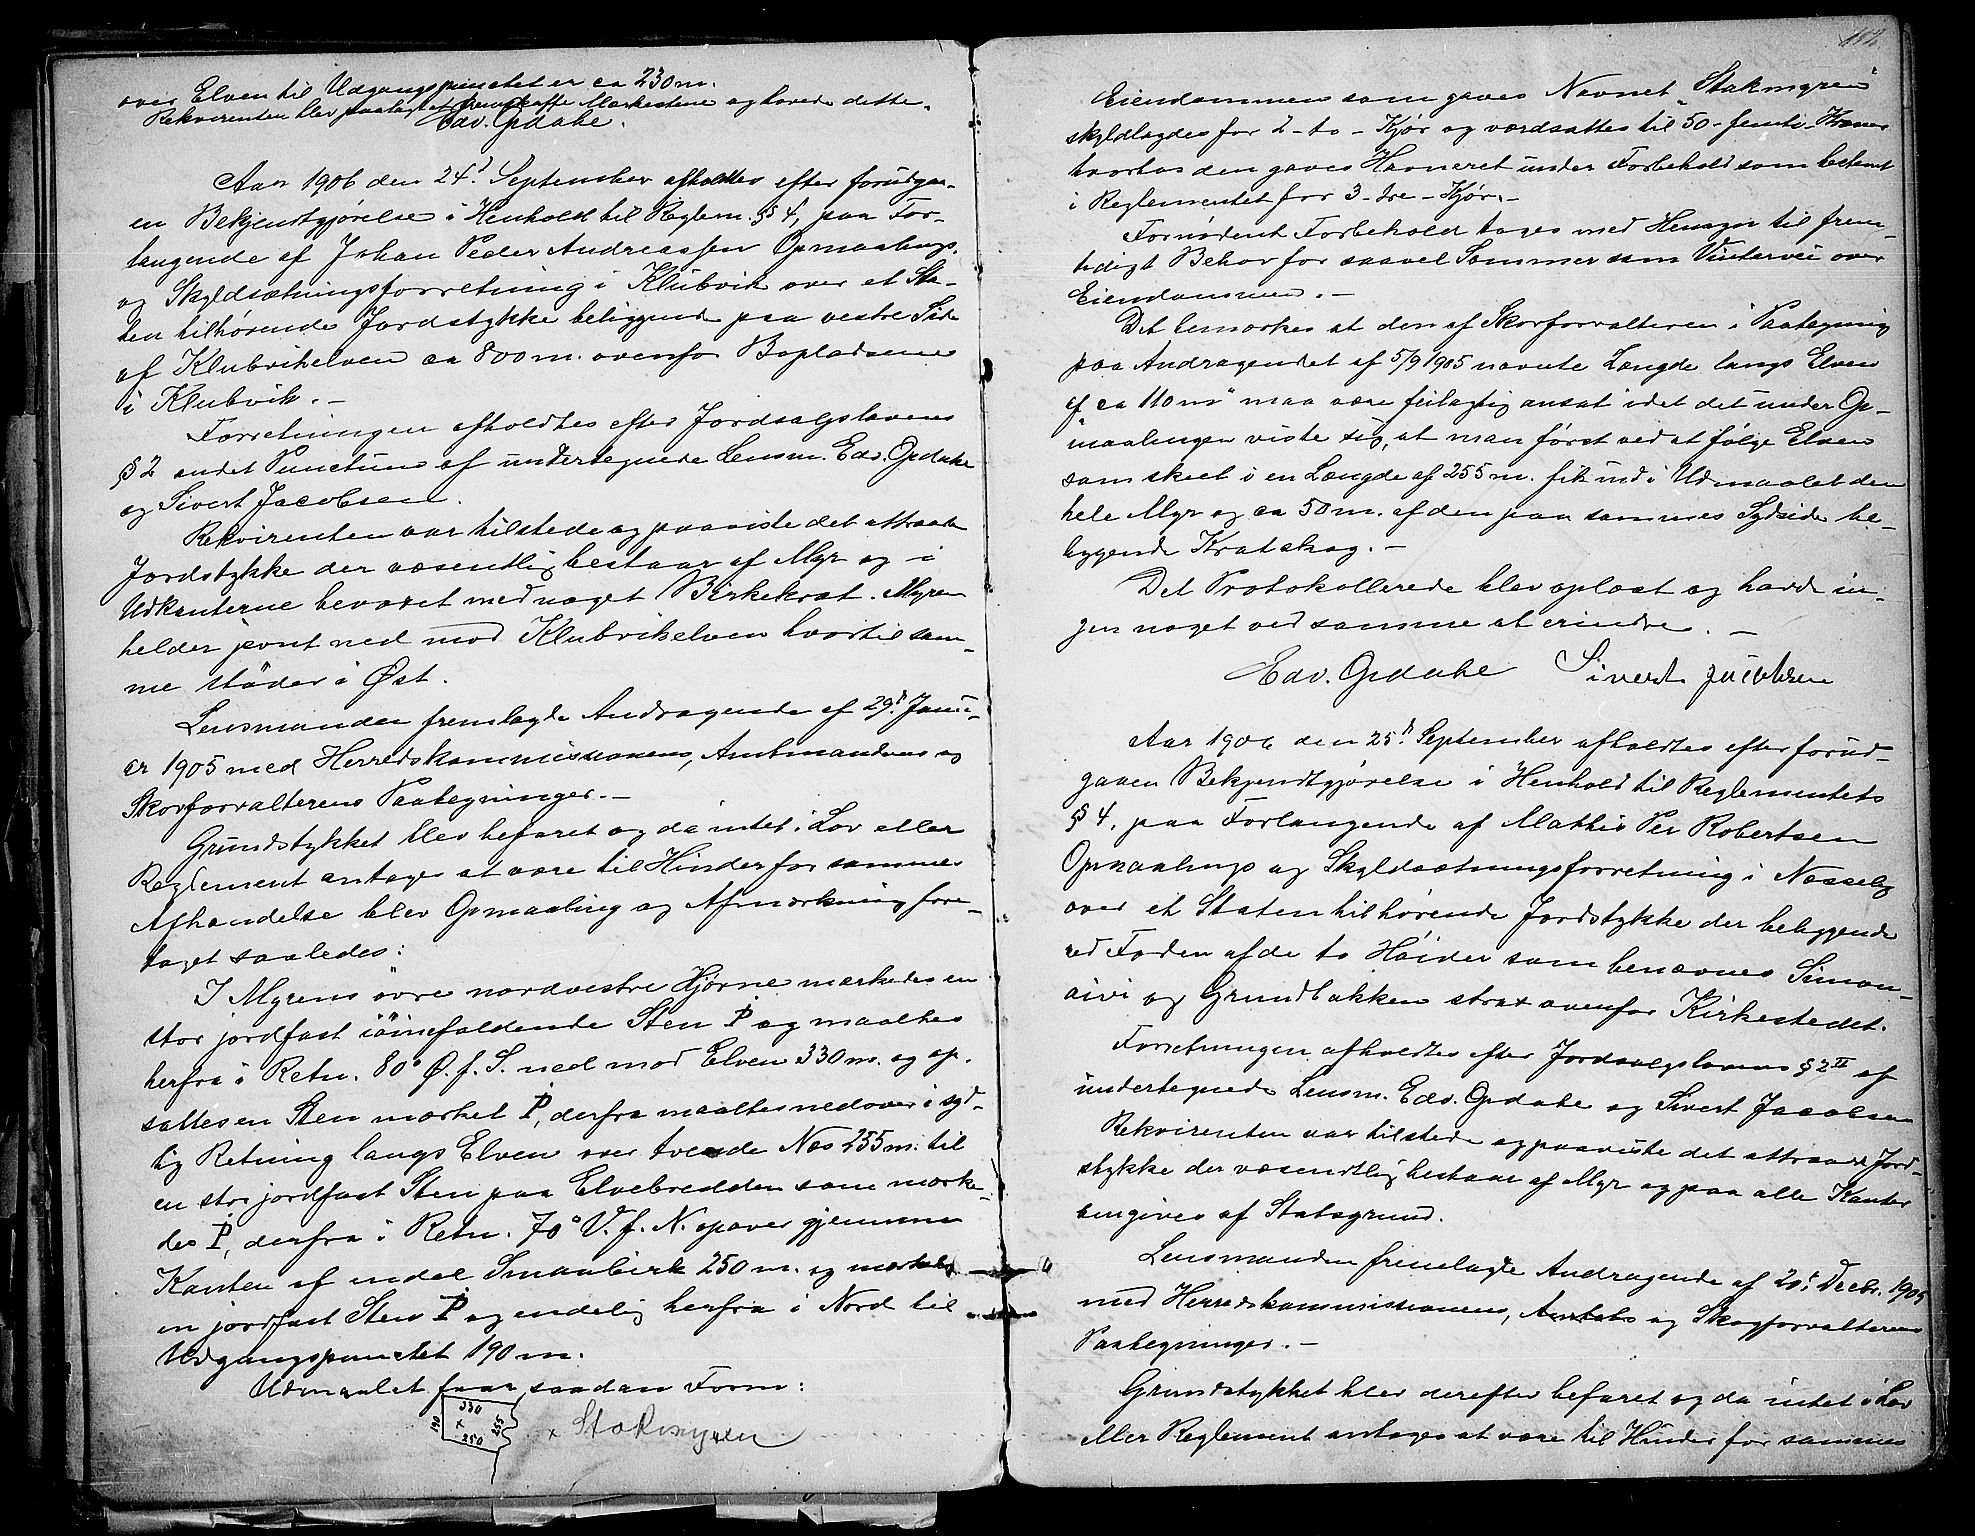 over Elven til Udgangspunctet er ca 230 m.
Rekvirenten blev paalagt at fremskaffe Markestene og hovede dette.
Edv. Opdahe.
Aar 1906 den 24d September afholdtes efter forudgaa-
en Bekjendtgjørelse i Henhold til Reglem. § 4, paa For-
langende af Johan Peder Andreassen Opmaalings.
og Skyldsætningsforretning i Klubvik over et Sta-
ten tilhørende Jordstykke beliggende paa vestre Side
af Klubvikelven ca 800 m. ovenfor Bopladsene
i Klubvik. —
Forretningen afholdtes efter Jordsalgslovens
§ 2 andet Punctum af undertegnede Lensm. Edv. Opdahe
og Sivert Jacobsen.
Rekvirenten var tilstede og paaviste det attraade
Jordstykke der væsentlig bestaar af Myr og i
Udkanterne bevoxet med noget Birkekrat. Myren
helder jevnt ned mod Klubvikelven hvortil sam-
me støder i Øst.
Lensmanden fremlagde Andragende af 29d Janu-
ar 1905 med Herredskommissionens, Amtmandens og
Skovforvalterens Paategninger. —
Grundstykket blev befaret og da intet i Lov eller
Reglement antages at være til Hinder for sammes
Afhændelse blev Opmaaling og Afmærkning fore-
taget saaledes:
I Myrens övre nordvestre Hjørne mærkedes en
stor jordfast iöinefaldende Sten P og maaltes
herfra i Retn. 80° Ø. f. S. ned mod Elven 330 m. og op-
sattes en Sten mærket P, derfra maaltes nedover i syd-
lig Retning langs Elven over tvende Næs 255 m. til
en stor jordfast Sten paa Elvebredden som mærke-
des P, derfra i Retn. 70° V. f. N. opover gjennem
Kanten af endel Smaabirk 250 m. og mærkedes
en jordfast Sten P og endelig herfra i Nord til
Udgangspunctet 190 m.
Udmaalet faar saadan Form:
330
190 x 255
250
x Stakmyren
Eiendommen som gaves Navnet „Stakmyren"
skyldlagdes for 2 - to - Kjør og værdsattes til 50 - femti - Kroner
hvorhos den gaves Havneret under Forbehold som bestemt
i Reglementet for 3 - tre - Kjør. —
Fornødent Forbehold tages med Hensyn til frem-
tidigt Behov for saavel Sommer som Vintervei over
Eiendommen. —
Det bemærkes at den af Skovforvalteren i Paategning
paa Andragendet af 5/9 1905 nævnte Længde langs Elven
af „ca 110 m" maa være feilagtig ansat idet det under Op-
maalingen viste sig, at man først ved at følge Elven
som skeet i en Længde af 255 m. fik ind i Udmaalet den
hele Myr og ca 50 m. af den paa sammes Sydside be-
liggende Kratskog. —
Det Protokollerede blev oplæst og havde in-
gen noget ved samme at erindre. —
Edv. Opdahe Sivert Jacobsen
Aar 1906 den 25d September afholdtes efter forud-
gaaen Bekjendtgjørelse i Henhold til Reglementets
§ 4, paa Forlangende af Mathis Per Robertsen
Opmaalings og Skyldsætningsforretning i Nesseby
over et Staten tilhørende Jordstykke der beliggende
ved Foden af de to Høider som benævnes Simon-
aivi og Grundbakken strax ovenfor Kirkestedet.
Forretningen afholdtes efter Jordsalgslovens § 2 II af
undertegnede Lensm. Edv. Opdahe og Sivert Jacobsen
Rekvirenten var tilstede og paaviste det attraaede Jord-
stykke der væsentlig bestaar af Myr og paa alle Kanter
omgives af Statsgrund.
Lensmanden fremlagde Andragende af 20d Decbr. 1905
med Herredskommissionens, Amtets og Skogforvalterens
Paategninger. —
Grundstykket blev derefter befaret og da intet i Lov
eller Reglement antages at være til Hinder for sammes